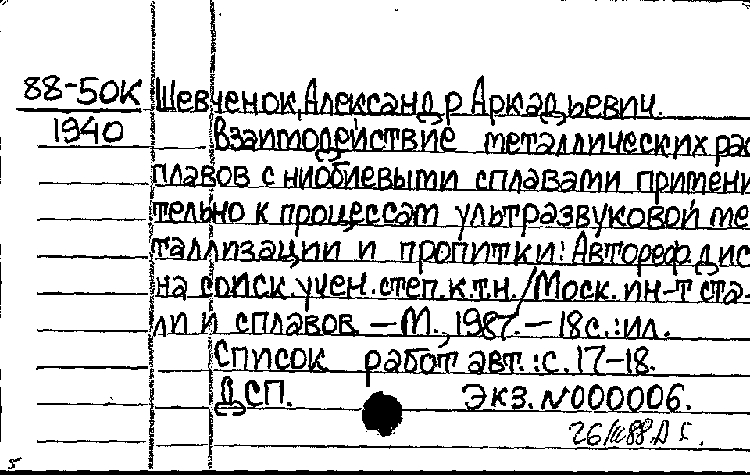 88-50К Шевченок, Александр Аркадьевич.
1940 Взаимодействие металлических рас
плавов с ниобиевыми сплавами примени
тельно к процессам ультразвуковой ме
таллизации и пропитки: Автореф. дис
на соиск. учен. степ. к.т.н. / Моск. ин-т ста-
ли и сплавов. — М., 1987. — 18 с. : ил.
Список работ авт.: с. 17-18.
ДСП. Экз. N 000006.
5